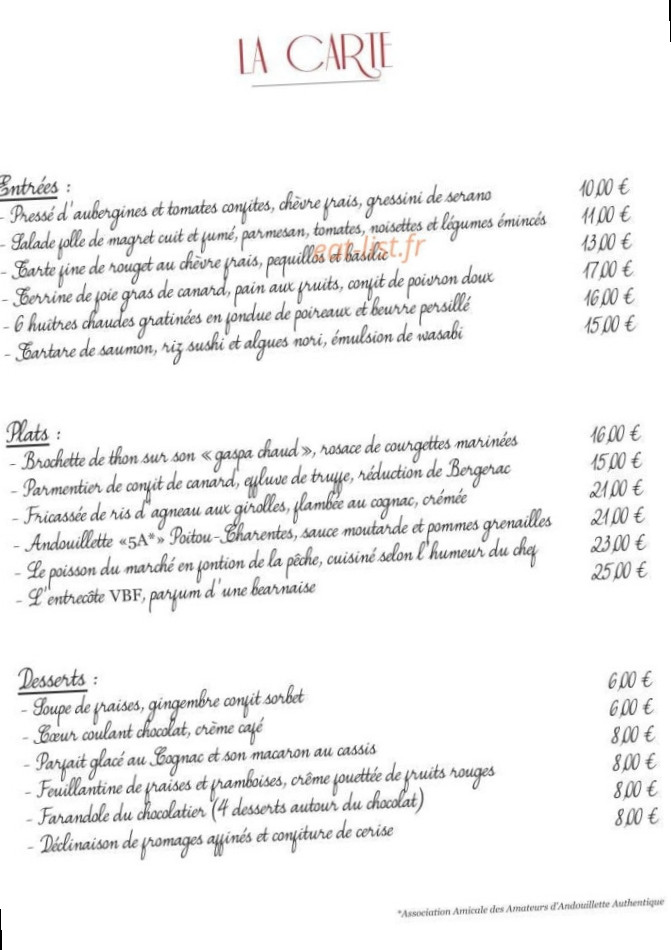 LA CARTE
Entrées :
- Pressé d'aubergines et tomates confites, chèvre frais, gressini de serano 10,00 €
- Salade folle de magret cuit et fumé, parmesan, tomates, noisettes et légumes émincés 11,00 €
eat-list.fr
- Tarte fine de rouget au chèvre frais, pequillos et basilic 13,00 €
- Terrine de foie gras de canard, pain aux fruits, confit de poivron doux 17,00 €
- 6 huîtres chaudes gratinées en fondue de poireaux et beurre persillé 16,00 €
- Tartare de saumon, riz sushi et algues nori, émulsion de wasabi 15,00 €
Plats :
- Brochette de thon sur son « gaspa chaud », rosace de courgettes marinées 16,00 €
- Parmentier de confit de canard, effluve de truffe, réduction de Bergerac 15,00 €
- Fricassée de ris d'agneau aux girolles, flambée au cognac, crémée 21,00 €
- Andouillette «5A*» Poitou-Charentes, sauce moutarde et pommes grenailles 21,00 €
- Le poisson du marché en fontion de la pêche, cuisiné selon l'humeur du chef 23,00 €
- L'entrecôte VBF, parfum d'une bearnaise 25,00 €
Desserts :
- Soupe de fraises, gingembre confit sorbet 6,00 €
- Cœur coulant chocolat, crème café 6,00 €
- Parfait glacé au Cognac et son macaron au cassis 8,00 €
- Feuillantine de fraises et framboises, crême fouettée de fruits rouges 8,00 €
- Farandole du chocolatier (4 desserts autour du chocolat) 8,00 €
- Déclinaison de fromages affinés et confiture de cerise 8,00 €
*Association Amicale des Amateurs d'Andouillette Authentique